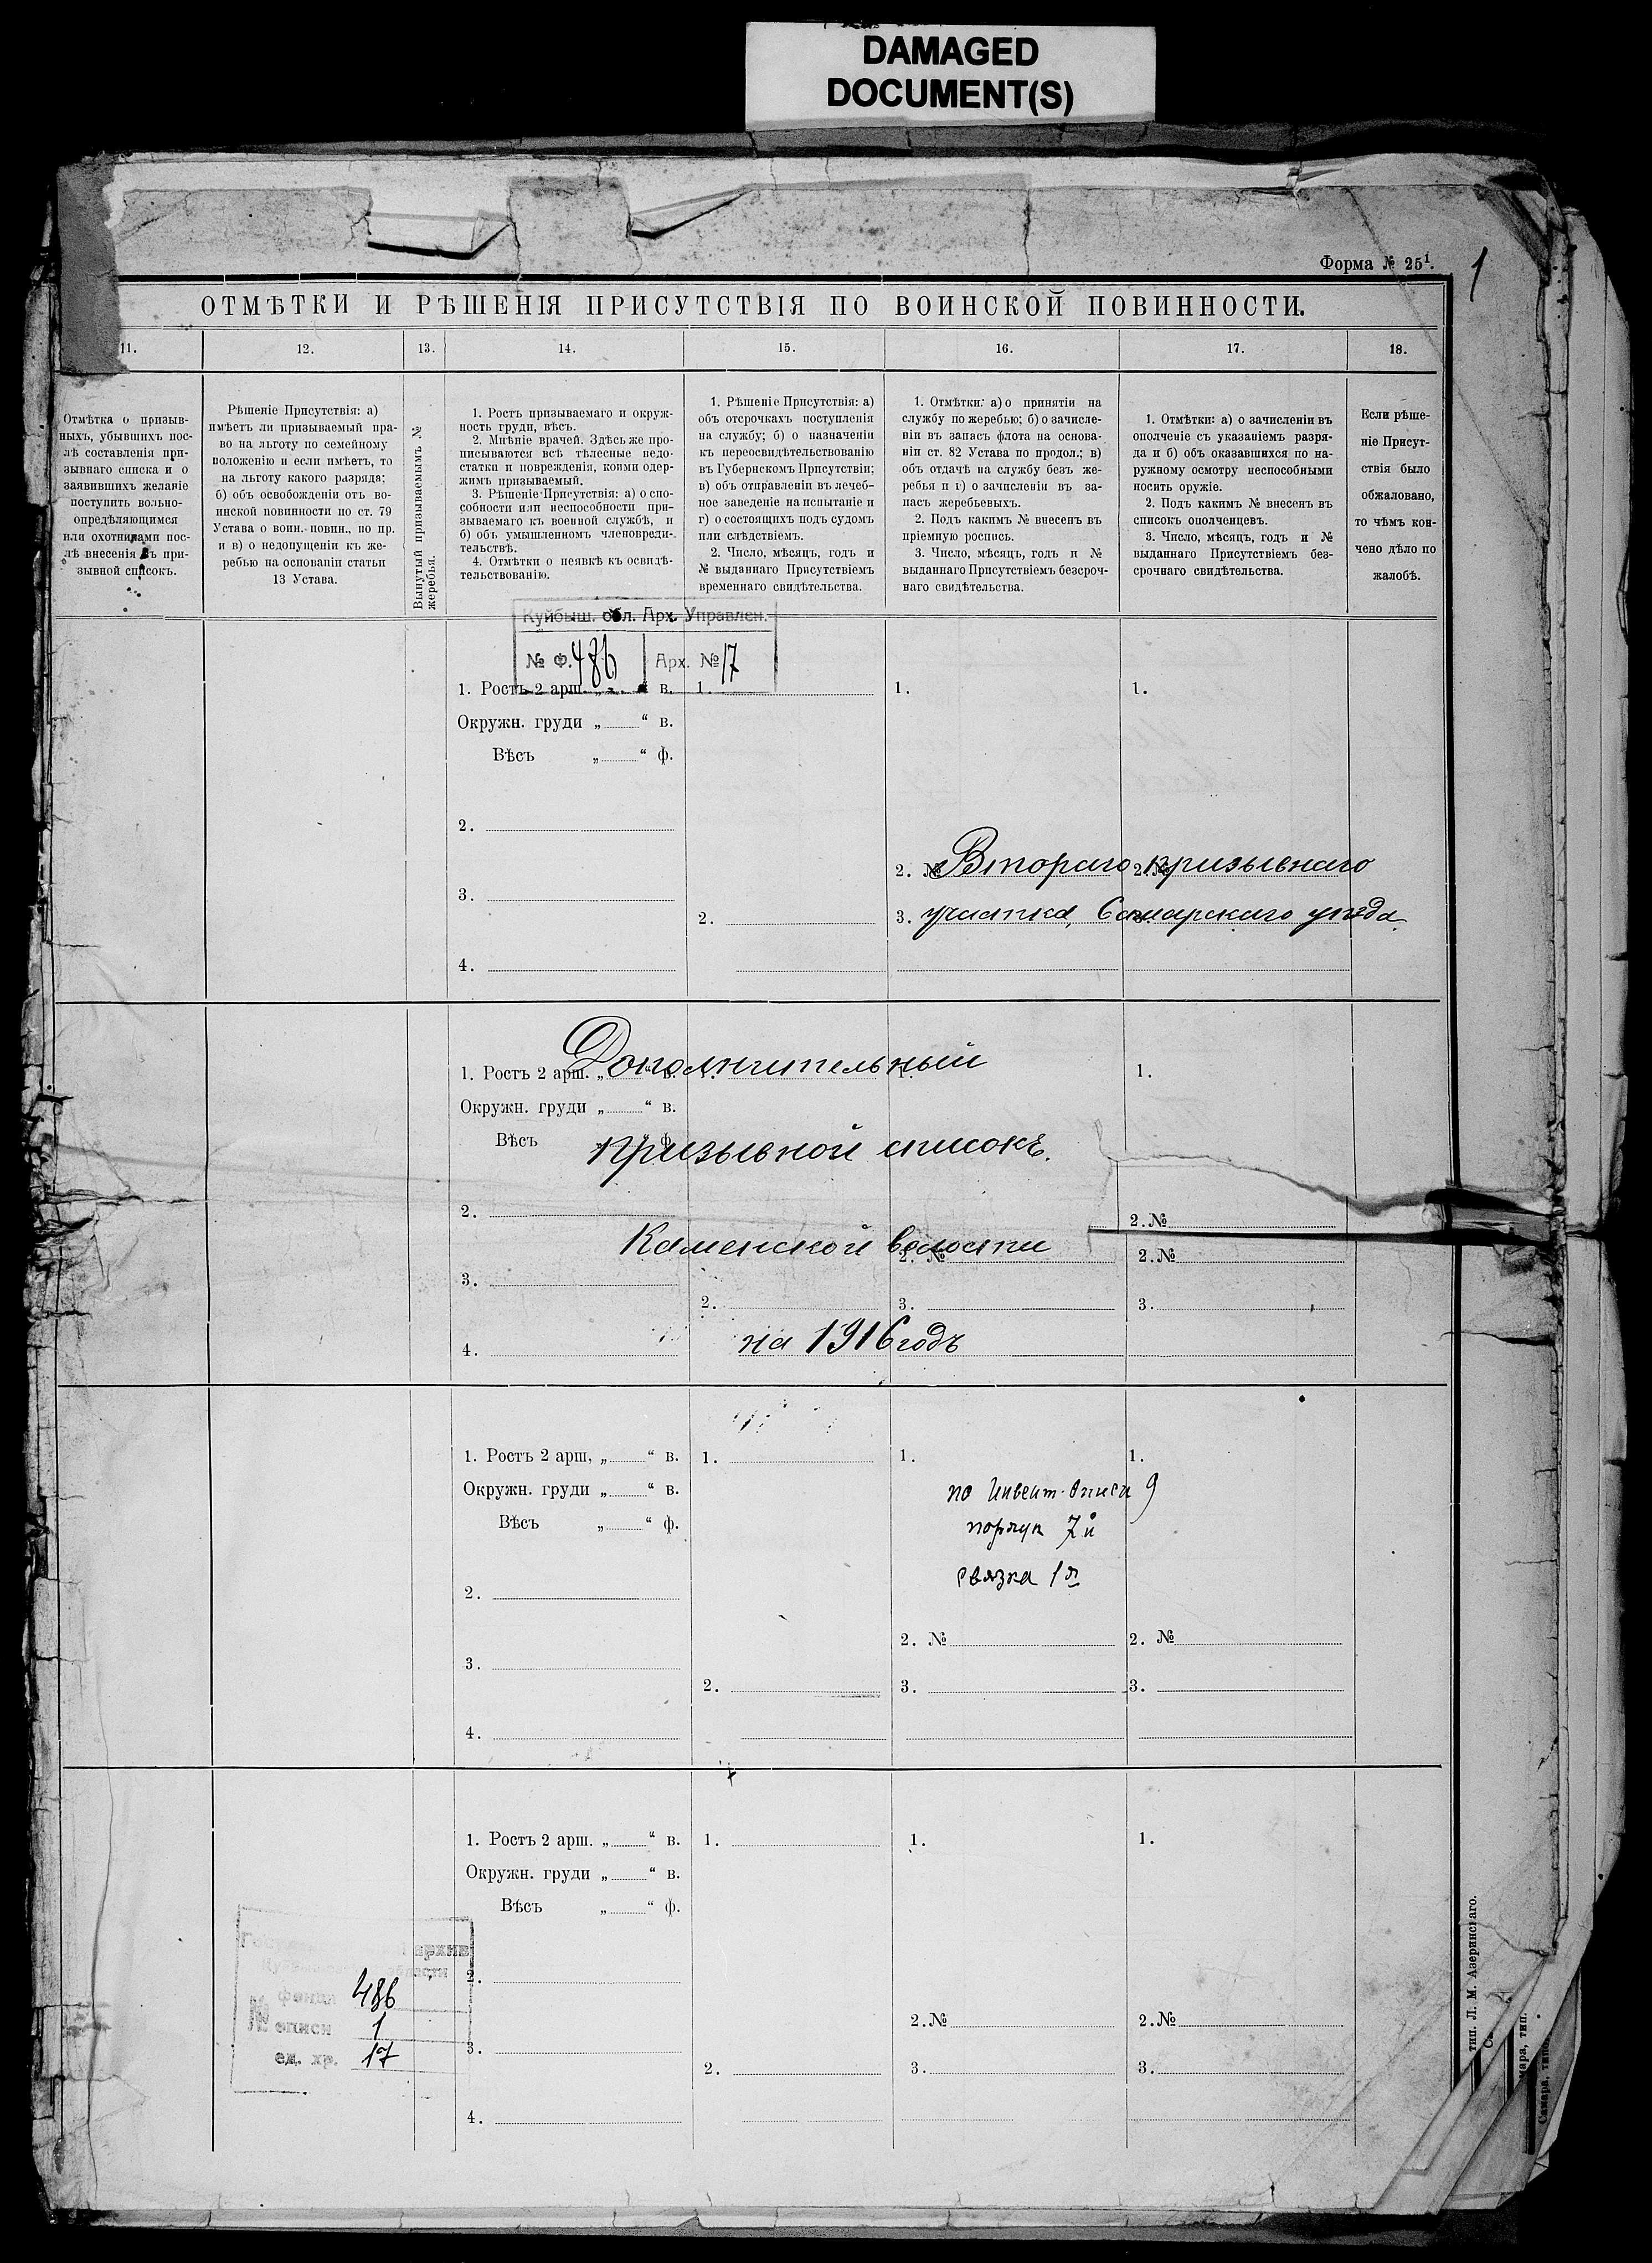 DAMAGED
DOCUMENT(S)
Форма № 25¹.
1
ОТМѢТКИ И РѢШЕНІЯ ПРИСУТСТВІЯ ПО ВОИНСКОЙ ПОВИННОСТИ.
11. 12. 13. 14. 15. 16. 17. 18.
Отмѣтка о призыв-
ныхъ, убывшихъ пос-
лѣ составленія при-
зывнаго списка и о
заявившихъ желаніе
поступить вольно-
опредѣляющимся
или охотниками пос-
лѣ внесенія въ при-
зывной списокъ.
Рѣшеніе Присутствія: а)
имѣетъ ли призываемый пра-
во на льготу по семейному
положенію и если имѣетъ, то
на льготу какого разряда;
б) объ освобожденіи отъ во-
инской повинности по ст. 79
Устава о воин. повин., по пр.
и в) о недопущеніи къ же-
ребью на основаніи статьи
13 Устава.
Вынутый призываемымъ №
жеребья.
1. Ростъ призываемаго и окруж-
ность груди, вѣсъ.
2. Мнѣніе врачей. Здѣсь же про-
писываются всѣ тѣлесные недо-
статки и поврежденія, коими одер-
жимъ призываемый.
3. Рѣшеніе Присутствія: а) о спо-
собности или неспособности при-
зываемаго къ военной службѣ, и
б) объ умышленномъ членовреди-
тельствѣ.
4. Отмѣтки о неявкѣ къ освидѣ-
тельствованію.
1. Рѣшеніе Присутствія: а)
объ отсрочкахъ поступленія
на службу; б) о назначеніи
къ переосвидѣтельствованію
въ Губернскомъ Присутствіи;
в) объ отправленіи въ лечеб-
ное заведеніе на испытаніе и
г) о состоящихъ подъ судомъ
или слѣдствіемъ.
2. Число, мѣсяцъ, годъ и
№ выданнаго Присутствіемъ
временнаго свидѣтельства.
1. Отмѣтки: а) о принятіи на
службу по жеребью; б) о зачисле-
ніи въ запасъ флота на основа-
ніи ст. 82 Устава по продол.; в)
объ отдачѣ на службу безъ же-
ребья и г) о зачисленіи въ за-
пасъ жеребьевыхъ.
2. Подъ какимъ № внесенъ въ
пріемную роспись.
3. Число, мѣсяцъ, годъ и №
выданнаго Присутствіемъ безсроч-
наго свидѣтельства.
1. Отмѣтки: а) о зачисленіи въ
ополченіе съ указаніемъ разря-
да и б) объ оказавшихся по на-
ружному осмотру неспособными
носить оружіе.
2. Подъ какимъ № внесенъ въ
списокъ ополченцевъ.
3. Число, мѣсяцъ, годъ и №
выданнаго Присутствіемъ без-
срочнаго свидѣтельства.
Если рѣше-
ніе Присут-
ствія было
обжаловано,
то чѣмъ кон-
чено дѣло по
жалобѣ.
Куйбыш. обл. Арх. Управлен.
№ Ф. 486 Арх. № 17
1. Ростъ 2 арш. „ “ в. 1. 1. 1.
Окружн. груди „ “ в.
Вѣсъ „ “ ф.
2.
2. № Второго призывнаго 2. №
3.
2. 3. участка, Самарскаго уѣзда.
4.
Дополнительный
1. Ростъ 2 арш. „ “ в. 1.
Окружн. груди „ “ в.
Вѣсъ ф.
призывной списокъ.
2. 2. №
Каменской волости
2. № 2. №
3.
2. 3. 3.
4. на 1916 годъ
1. Ростъ 2 арш. „ “ в. 1. 1. 1.
Окружн. груди „ “ в.
по Инвент. Описи 9
Вѣсъ „ “ ф.
7й
связка 1я
2.
2. № 2. №
3.
2. 3. 3.
4.
1. Ростъ 2 арш. „ “ в. 1. 1. 1.
Окружн. груди „ “ в.
Вѣсъ „ “ ф.
архив
области
2.
фонда 486
№ описи 1
2. № 2. №
3.
ед. хр. 17
2. 3. 3.
4.
тип. Л. М. Азеринскаго.